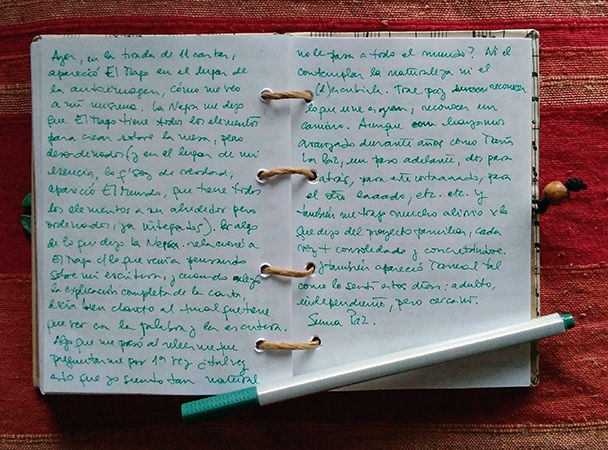 Ayer, en la tirada de 11 cartas,
apareció El Mago en el lugar de
la autoimagen, cómo me veo
a mí misma. La Negra me dijo
que El Mago tiene todos los elementos
para crear sobre la mesa, pero
desordenados (y en el lugar de mi
esencia, lo q' soy de verdad,
apareció El Mundo, que tiene todos
los elementos a su alrededor pero
ordenados, ya integrados). Por algo
de lo que dijo la Negra relacioné a
El Mago c/lo que venía pensando
sobre mi escritura, y cuando
la explicación completa de la carta,
decía bien clarito al final que tiene
que ver con la palabra y la escritura.
Algo que me pasó al releerme fue
preguntarme por 1ª vez ¿tal vez
esto que yo siento tan natural
no le pasa a todo el mundo? Ni el
contemplar la naturaleza ni el
(d)escribirla. Trae paz reconocer
lo que une es, reconocer un
camino. Aunque hayamos
avanzado durante años como
la luz, un paso adelante, dos para
atrás, para este costado, para
el otro costado, etc. etc. Y
también me trajo mucho alivio x lo
que dijo del proyecto familiar, cada
vez + consolidado y concretándose.
Y también apareció tal
como lo sentí estos días: adulto,
independiente, pero cercano.
Suma Paz.